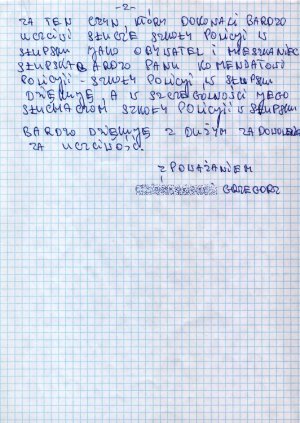 -2-
ZA TEN CZYN, KTÓRY DOKONALI BARDZO
UCZCIWI SZKOLE POLICJI W
SŁUPSKU JAKO OBYWATEL I MIESZKANIEC
SŁUPSKA BARDZO PANU KOMENDATOWI
POLICJI - SZKOŁY POLICJI W SŁUPSKU
DZIĘKUJĘ, A W SZCZEGÓLNOŚCI JEGO
SŁUCHACZOM SZKOŁY POLICJI W SŁUPSKU
BARDZO DZIĘKUJĘ Z DUŻYM ZADOWOLEN
ZA UCZCIWOŚĆ.
Z POWAŻANIEM
GRZEGORZ